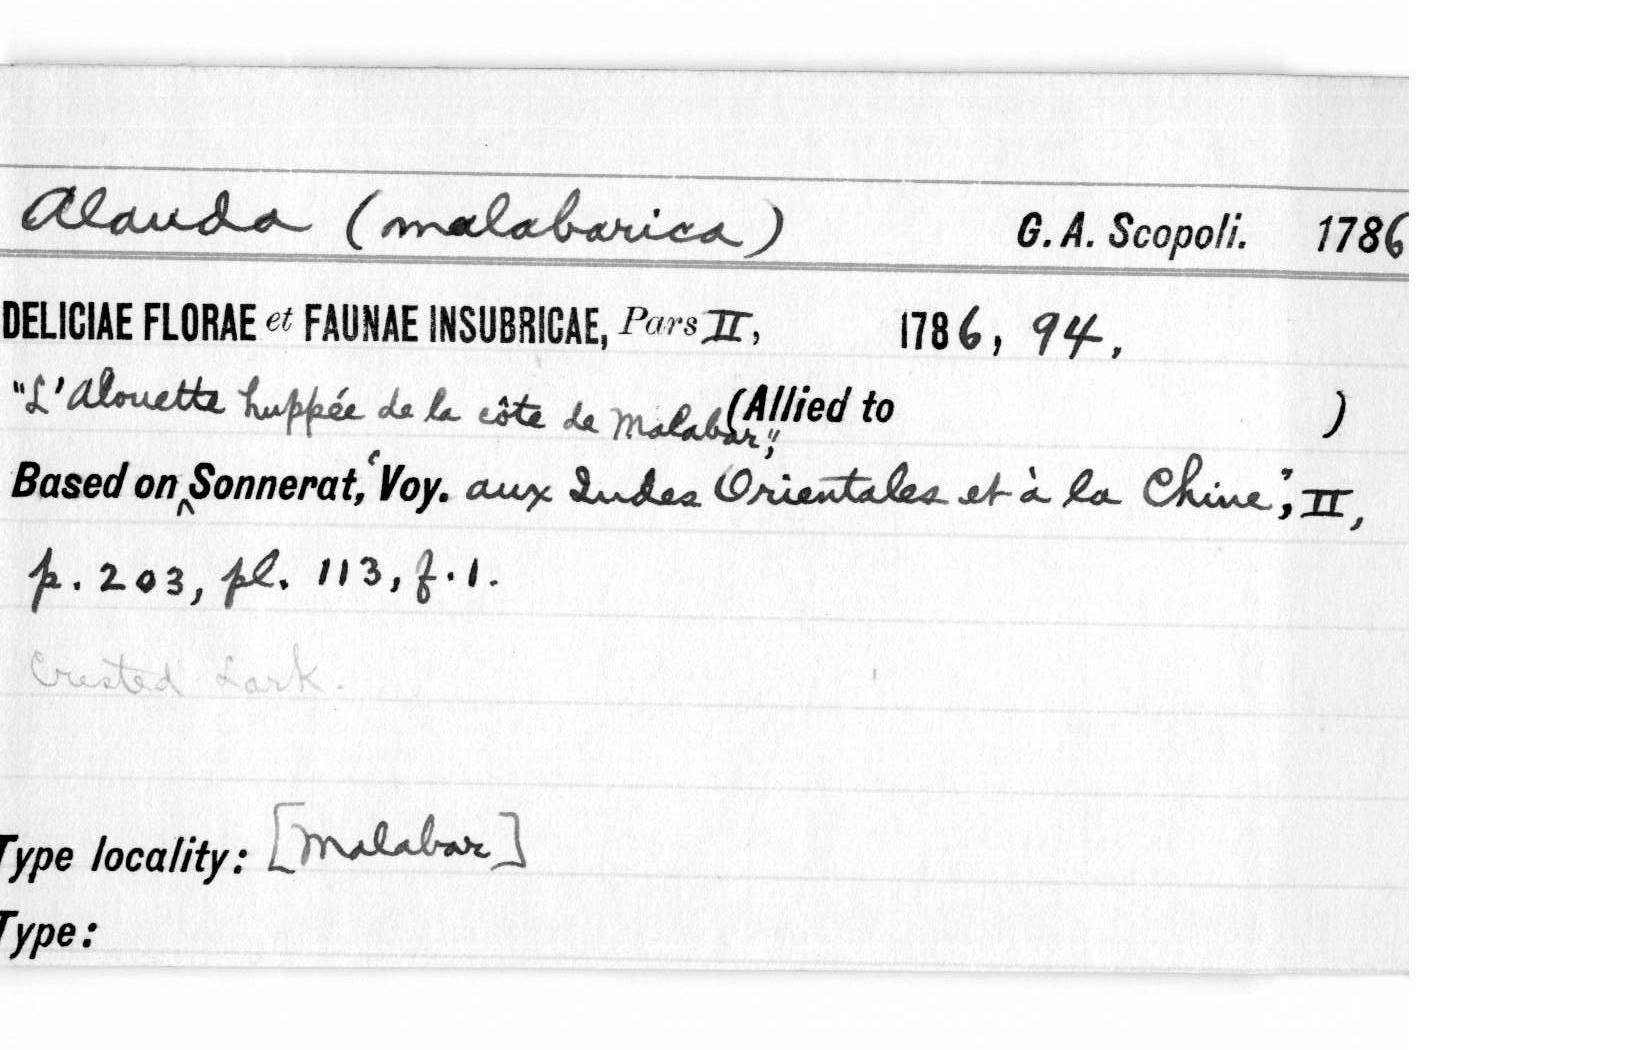 Alauda (malabarica) G. A. Scopoli. 1786
DELICIAE FLORAE et FAUNAE INSUBRICAE, Pars II, 1786, 94.
"L'Alouette huppée de la côte de Malabar", (Allied to )
Based on ^ Sonnerat, 'Voy. aux Indes Orientales et à la Chine', II,
p. 203, pl. 113, f. 1.
Crested Lark.
Type locality: [Malabar]
Type: